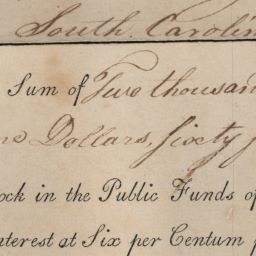 South Carolin
Sum of Two thousan
Dollars, Sixty
ock in the Public Funds of
nterest at Six per Centum p